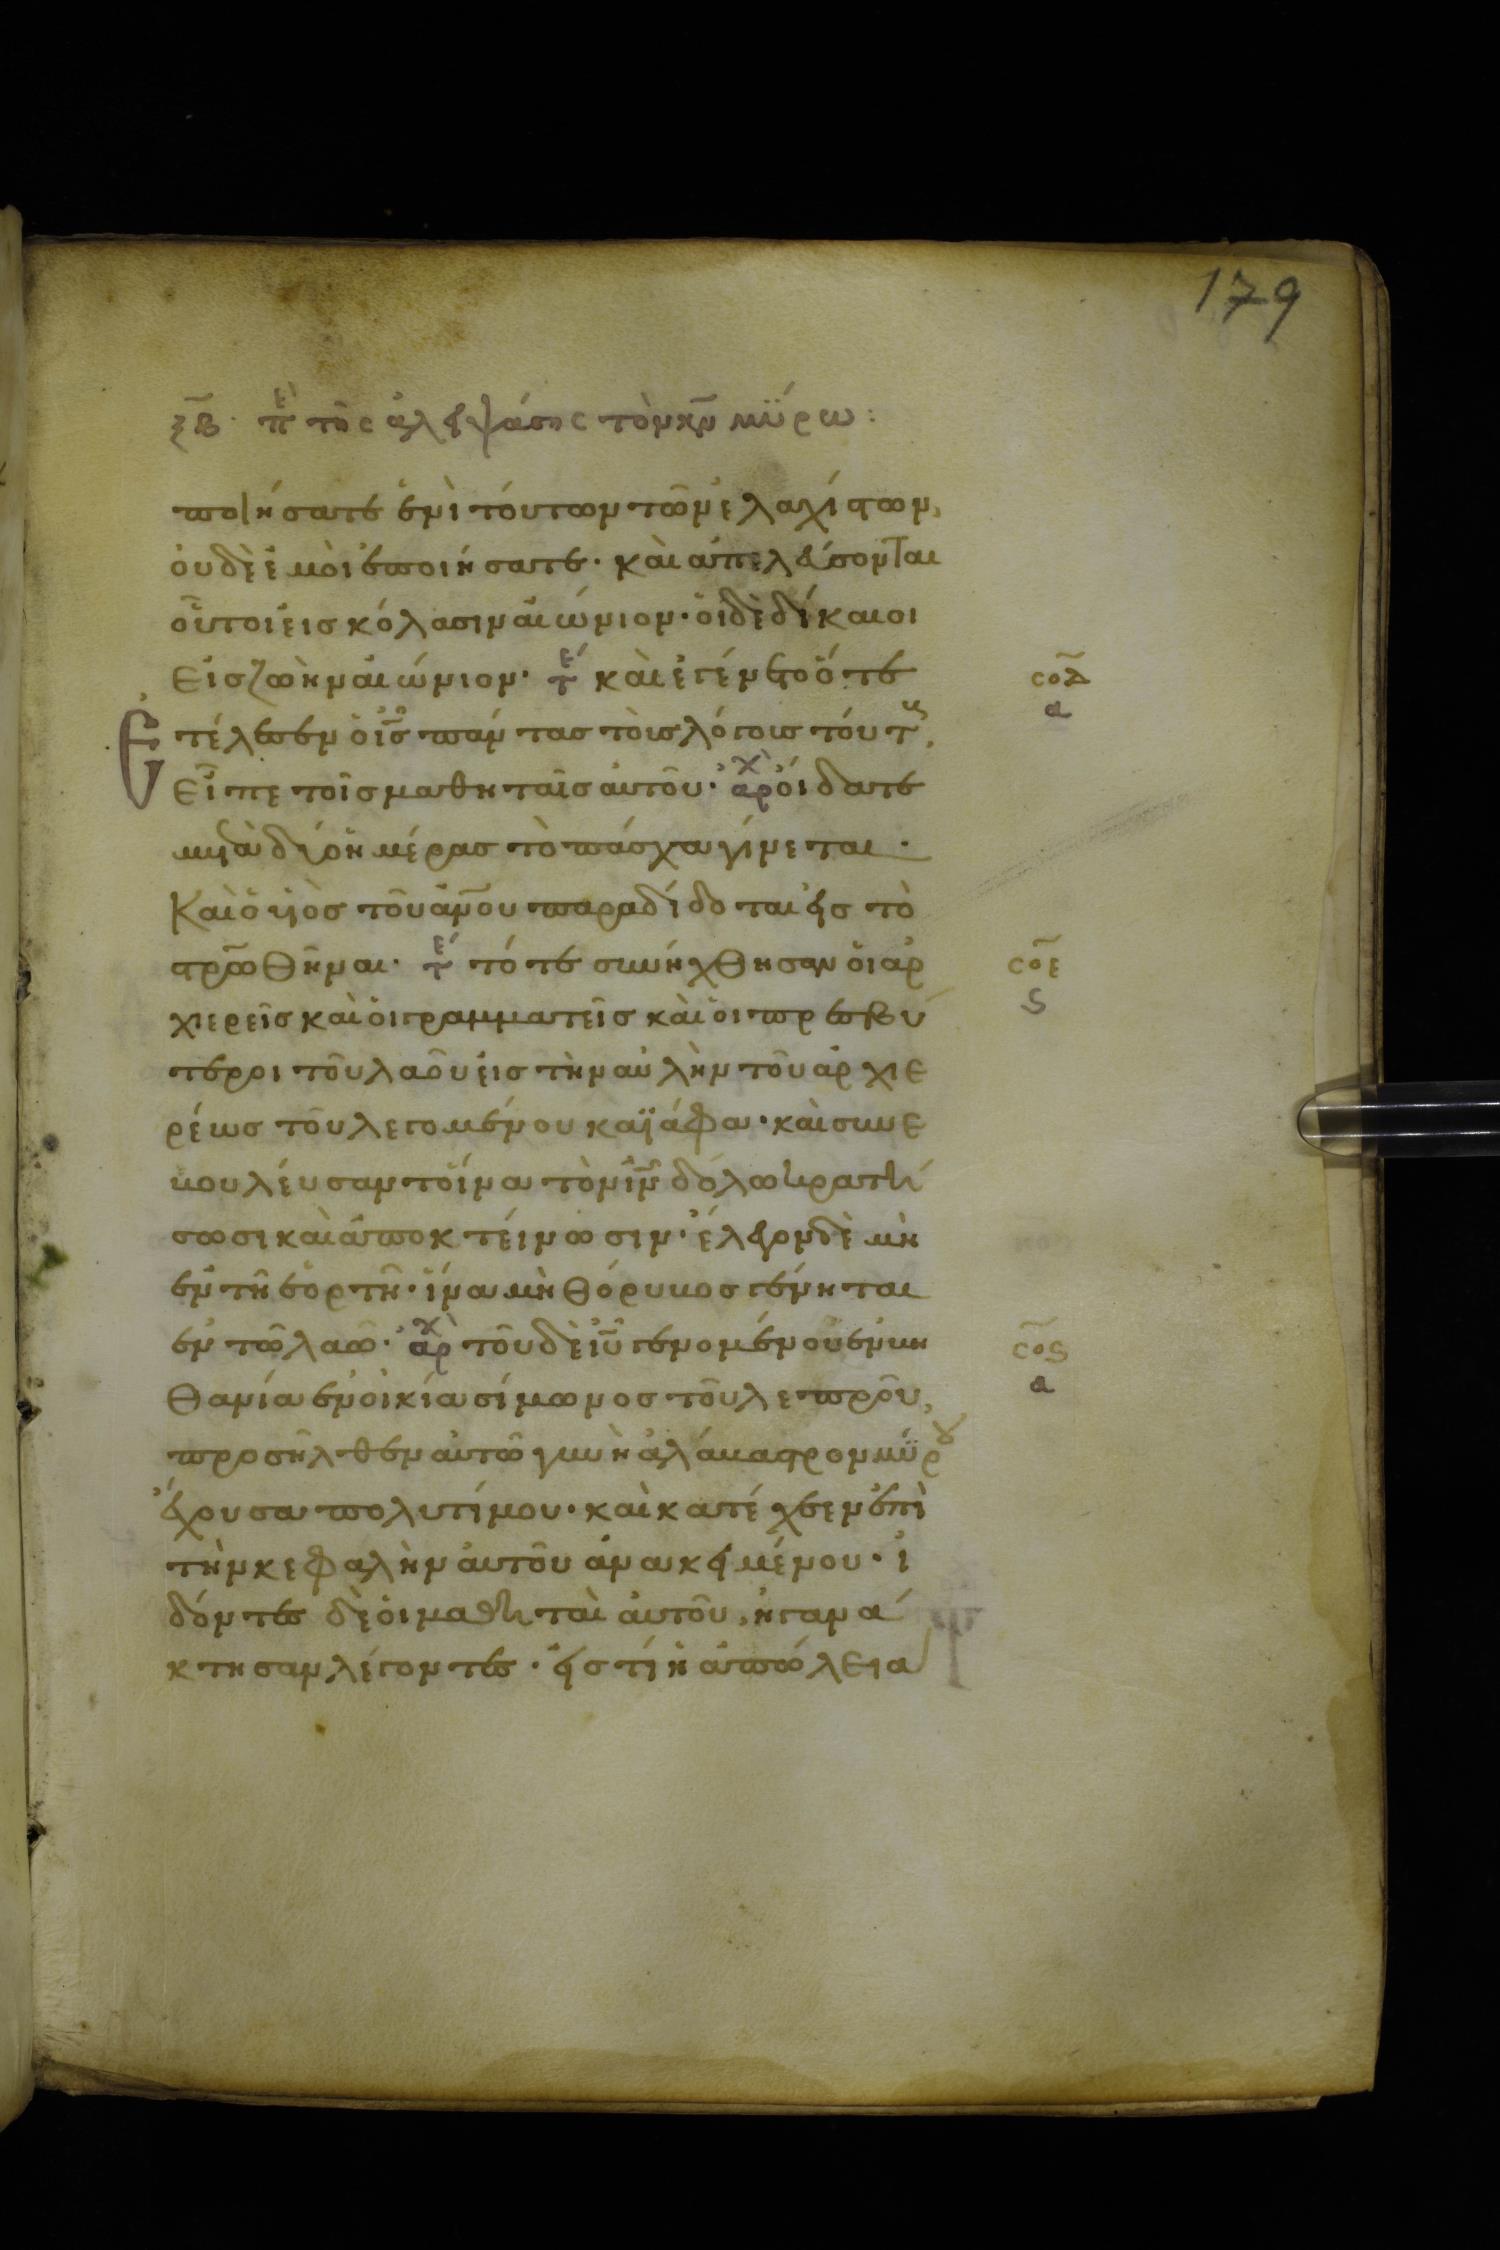 179
ξ̅β̅· πε̅ τῆς ἀλειψάσης τὸν κ̅ν̅ μύρω:
ποιήσατε ἑνὶ τούτων τῶν ἐλαχίστων,
οὐδὲ ἐμοὶ ἐποιήσατε· καὶ ἀπελεύσονται
οὗτοι εἰς κόλασιν αἰώνιον· οἱ δὲ δίκαιοι
εἰς ζωὴν αἰώνιον· τέ καὶ ἐγένετο ὅτε
ἐτέλεσεν ὁ ι̅ς̅ πάντας τοὺς λόγους τούτ,
εἶπε τοῖς μαθηταῖς αὐτοῦ· ἀρχ οἴδατε
μετὰ δύο ἡμέρας τὸ πάσχα γίνεται·
Καὶ ὁ υἱὸς τοῦ ἀν̅ου παραδίδοται εἰς τὸ
στρ̅ωθῆναι· τέ τότε συνήχθησαν οἱ ἀρ
χιερεῖς καὶ οἱ γραμματεῖς καὶ οἱ πρεσβύ
τεροι τοῦ λαοῦ εἰς τὴν αὐλὴν τοῦ ἀρχιε
ρέως τοῦ λεγομένου καϊάφα· καὶ συνε
βουλεύσαντο ἵνα τὸν ι̅ν̅ δόλω κρατή
σωσι καὶ ἀποκτείνωσιν· ἔλεγον δὲ μὴ
ἐν τῆ ἑορτῆ· ἵνα μὴ θόρυβος γένηται
ἐν τῶ λαῶ· ἀρχ τοῦ δὲ ι̅υ̅ γενομένου ἐν βη
θανία ἐν οἰκία σίμωνος τοῦ λεπροῦ,
προσῆλθεν αὐτῶ γυνὴ ἀλάβαστρον μύρου
ἔχουσα πολυτίμου· καὶ κατέχεεν ἐπὶ
τὴν κεφαλὴν αὐτοῦ ἀνακειμένου· ἰ
δόντες δὲ οἱ μαθηταὶ αὐτοῦ, ἠγανά
κτησαν λέγοντες· εἰς τί ἡ ἀπώλεια
σ̅ο̅δ̅
α
σ̅ο̅ε̅
ϛ
σ̅ο̅ϛ̅
α